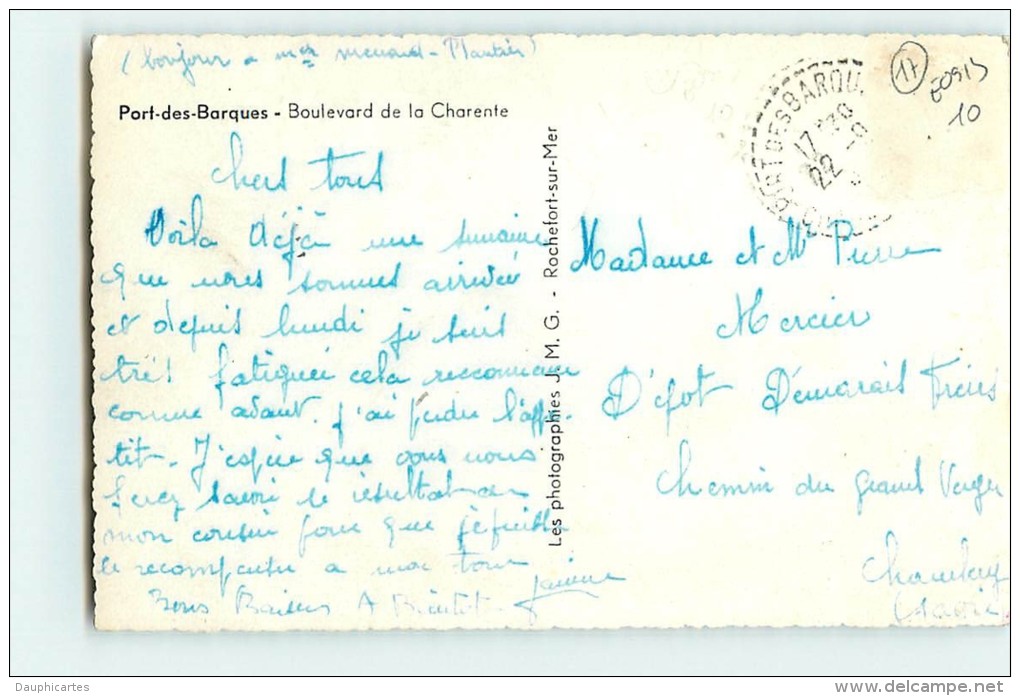 (bonjour a mer menaud - Plantier)
Port-des-Barques - Boulevard de la Charente
Chers tous
Voila déjà une semaine
que nous sommes arrivée
et depuis lundi je suis
très fatiguée cela recommence
comme avant. j'ai perdu l'appe-
tit. J'espère que vous nous
ferez savoir le résultat de
mon cousin pour que je puisse
le recompenser a mon tour
Bons Baisers A Bientot
Janine
Les photographies J. M. G. - Rochefort-sur-Mer
PORT DES BARQU
17 30
22 -9
17
E0915
10
Madame et Mr Pierre
Mercier
Dépot Démarais Frères
Chemin du Grand Verger
Chambéry
(Savoie
Dauphicartes
www.delcampe.net